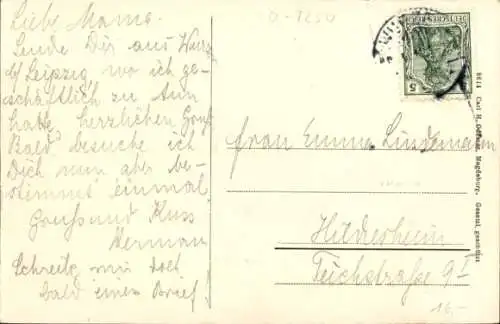 Lieb. Mama.
Sende Dir aus
b/ Leipzig, wo ich ge-
schäftlich zu tun
hatte, herzlichen Gruß
Bald besuche ich
Dich nun aber be-
stimmt einmal
Gruß und Kuss
Herman
Schreibe mir doch
bald einen Brief!
D-7250
DEUTSCHES REICH
5
Frau Emma Lindemann
Hildesheim
Teichstraße 9
16,-
Magdeburg. Gesetzl. geschützt